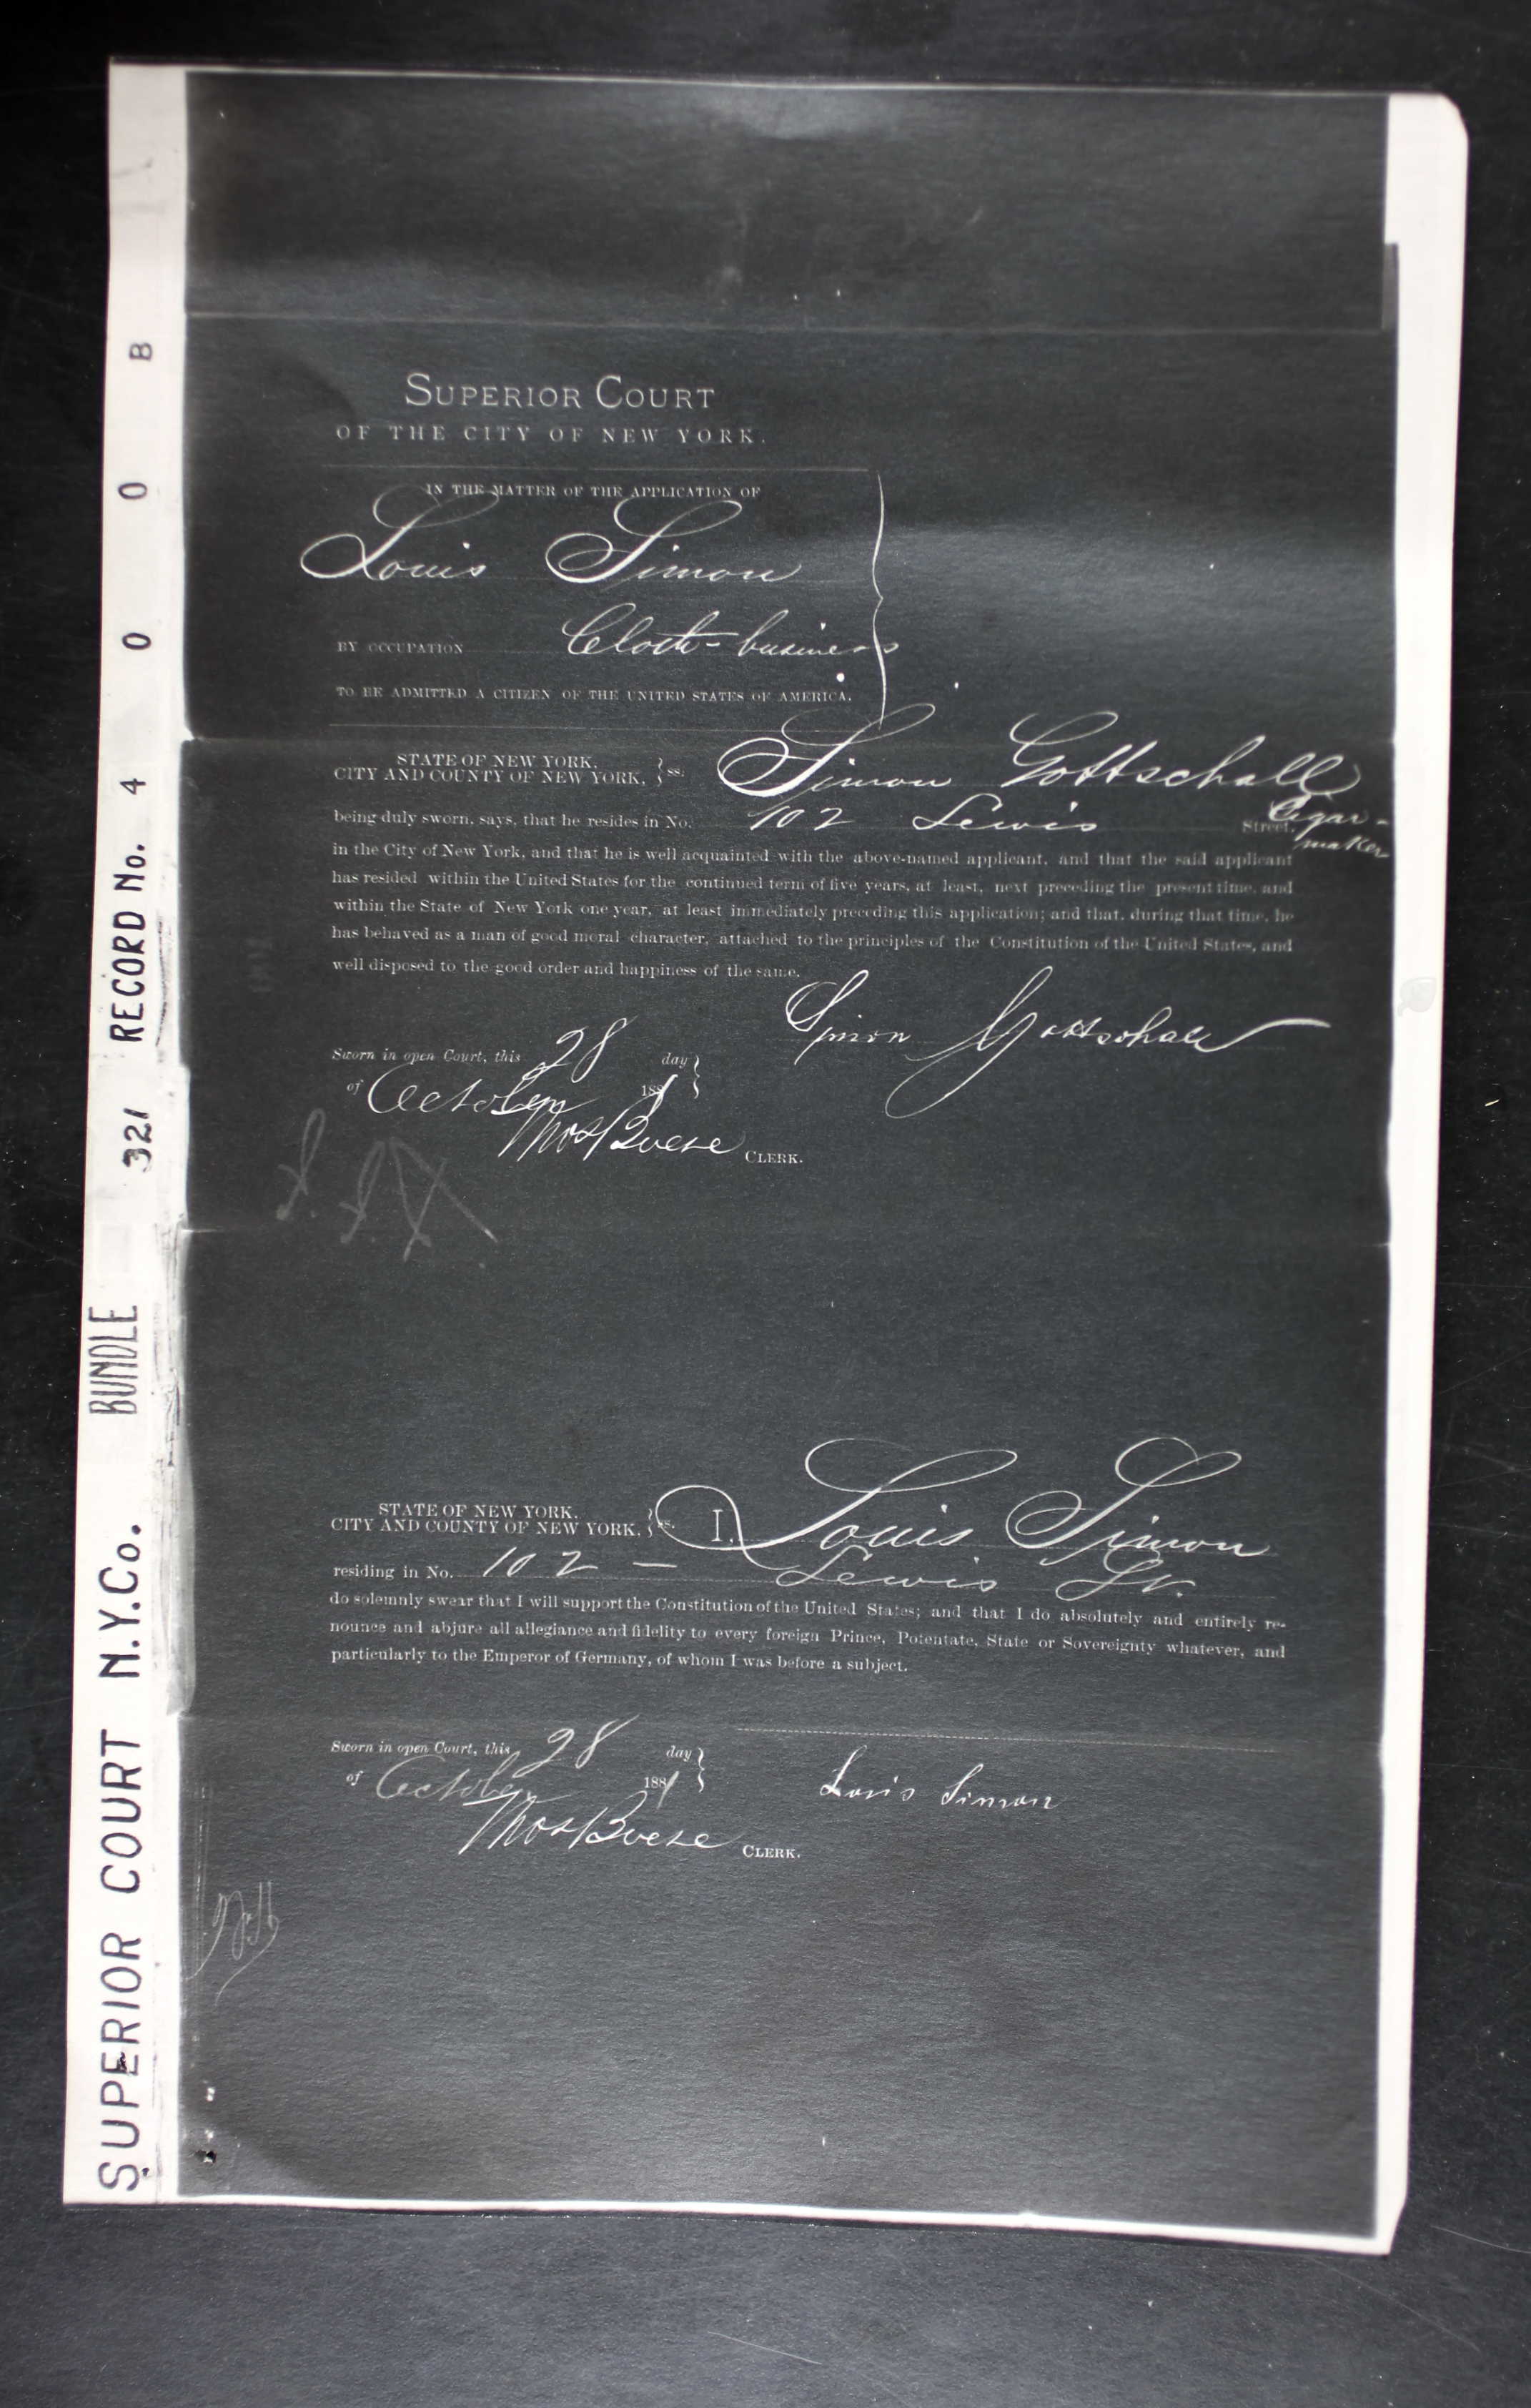 SUPERIOR COURT N.Y.Co. BUNDLE 321 RECORD No. 4 0 0 B
SUPERIOR COURT
OF THE CITY OF NEW YORK.
IN THE MATTER OF THE APPLICATION OF
Louis Simon
BY OCCUPATION Cloth-business
TO BE ADMITTED A CITIZEN OF THE UNITED STATES OF AMERICA.
STATE OF NEW YORK,
CITY AND COUNTY OF NEW YORK, } ss. Simon Gottschall
being duly sworn, says, that he resides in No. 102 Lewis Street, Cigar-
maker
in the City of New York, and that he is well acquainted with the above-named applicant, and that the said applicant
has resided within the United States for the continued term of five years, at least, next preceding the present time, and
within the State of New York one year, at least immediately preceding this application; and that, during that time, he
has behaved as a man of good moral character, attached to the principles of the Constitution of the United States, and
well disposed to the good order and happiness of the same.
Simon Gottschall
Sworn in open Court, this 28 day }
of October 1881
Thos Boese CLERK.
STATE OF NEW YORK,
CITY AND COUNTY OF NEW YORK, } ss. I, Louis Simon
residing in No. 102 — Lewis St.
do solemnly swear that I will support the Constitution of the United States; and that I do absolutely and entirely re-
nounce and abjure all allegiance and fidelity to every foreign Prince, Potentate, State or Sovereignty whatever, and
particularly to the Emperor of Germany, of whom I was before a subject.
Sworn in open Court, this 28 day }
of October 1881 Louis Simon
Thos Boese CLERK.